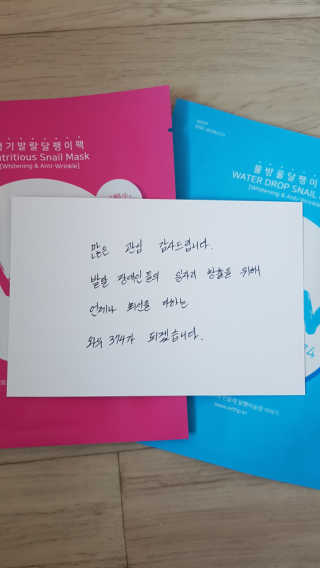 생기발랄달팽이팩
Nutritious Snail Mask
[Whitening & Anti-Wrinkle]
물방울달팽이
WATER DROP SNAIL
[Whitening & Anti-Wrinkle
많은 관심 감사드립니다.
발달 장애인들의 일자리 창출을 위해
언제나 최선을 다하는
와우 374가 되겠습니다.